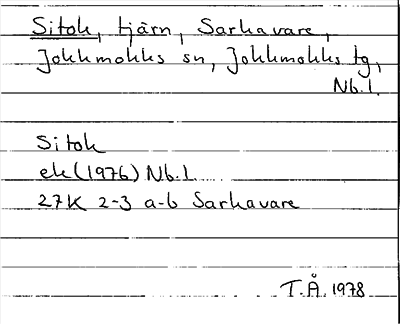 Sitok, tjärn, Sarkavare,
Jokkmokks sn, Jokkmokks tg,
Nb.l.
Sitok
ek(1976) Nb.l.
27K 2-3 a-b Sarkavare
T.Å. 1978